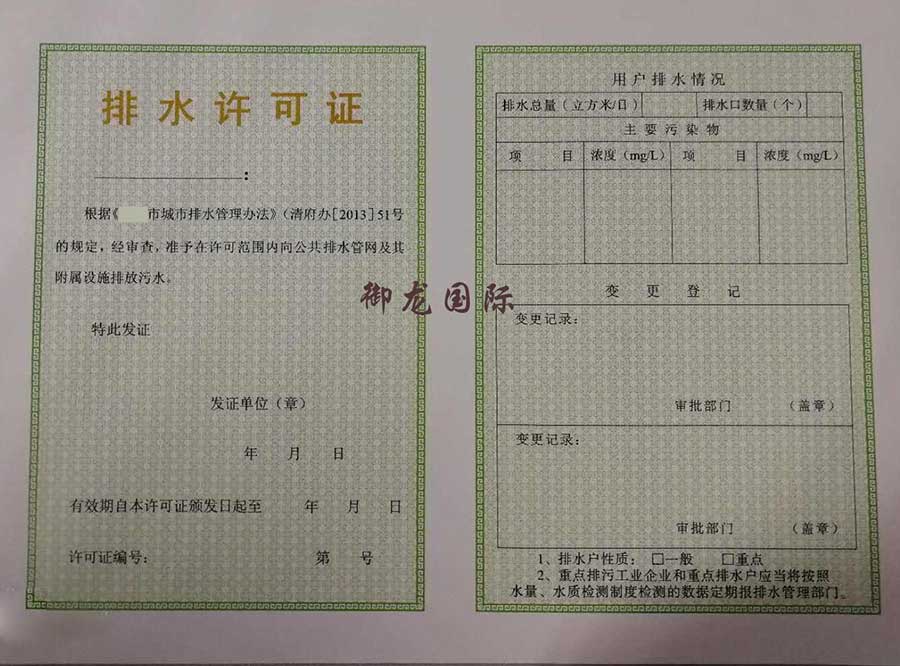 排水许可证
:
根据《 市城市排水管理办法》(清府办[2013]51号
的规定,经审查,准予在许可范围内向公共排水管网及其
附属设施排放污水。
特此发证
发证单位(章)
年 月 日
有效期自本许可证颁发日起至 年 月 日
许可证编号: 第 号
御龙国际
用户排水情况
排水总量(立方米/日) 排水口数量(个)
主要污染物
项 目 浓度(mg/L) 项 目 浓度(mg/L)
变更登记
变更记录:
审批部门 (盖章)
变更记录:
审批部门 (盖章)
1、排水户性质: □一般 □重点
2、重点排污工业企业和重点排水户应当将按照
水量、水质检测制度检测的数据定期报排水管理部门。